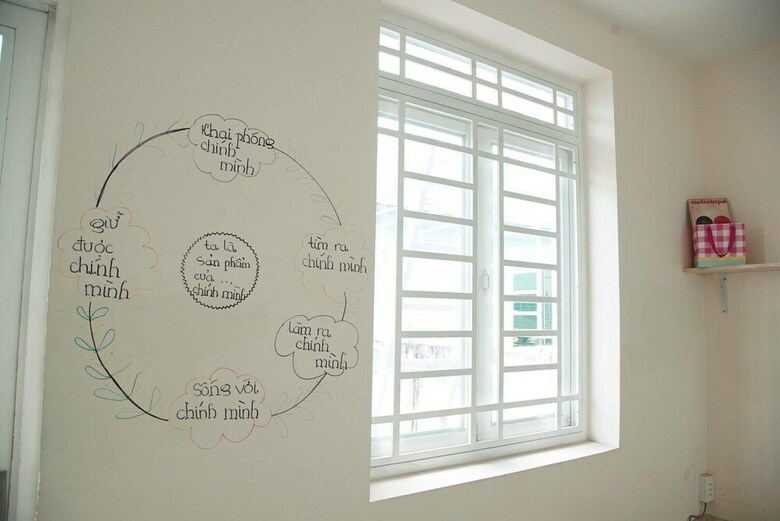 Khai phóng
chính
mình
tìm ra
chính mình
làm ra
chính
mình
sống với
chính mình
giữ
được
chính
mình
ta là
sản phẩm
của ...
chính mình